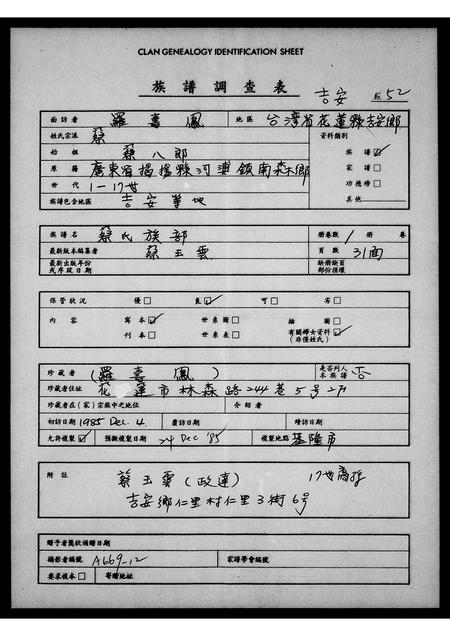 CLAN GENEALOGY IDENTIFICATION SHEET
族譜調查表 吉安 52
面訪者 羅壽鳳 地區 台灣省花蓮縣吉安鄉
姓氏宗派 蔡 資料類別
始祖 蔡八郎 族譜☑
原籍 廣東省揭揚縣河婆鎮南森鄉 家譜□
世代 1-17世 功德榜□
族譜包含地區 吉安等地 其他
族譜名 蔡氏族部 冊卷數 1 冊 卷
最新版本編纂者 蔡玉雲 頁數 31面
最新出版年份或序跋日期 缺冊缺頁部份損壞
保管狀況 優□ 良☑ 可□ 劣□
內容 寫本☑ 世系圖□ 插圖□
刊本□ 世系表□ 有關婦女資料☑ (非僅姓氏)
珍藏者 (羅壽鳳) 是否列入本族譜 否
珍藏者住址 花蓮市林森路244巷5号2F
珍藏者在(家)宗族中之地位 介紹者
初訪日期 1985 Dec. 4. 覆訪日期 續訪日期
允許複製☑ 預擬複製日期 24 Dec '85 複製地點 基隆市
附註 蔡玉雲(政連) 17世裔孫
吉安鄉仁里村仁里3街6号
贈予者獎狀頒贈日期
攝影者編號 A669-12 家譜學會編號
要求複本□ 寄贈地址